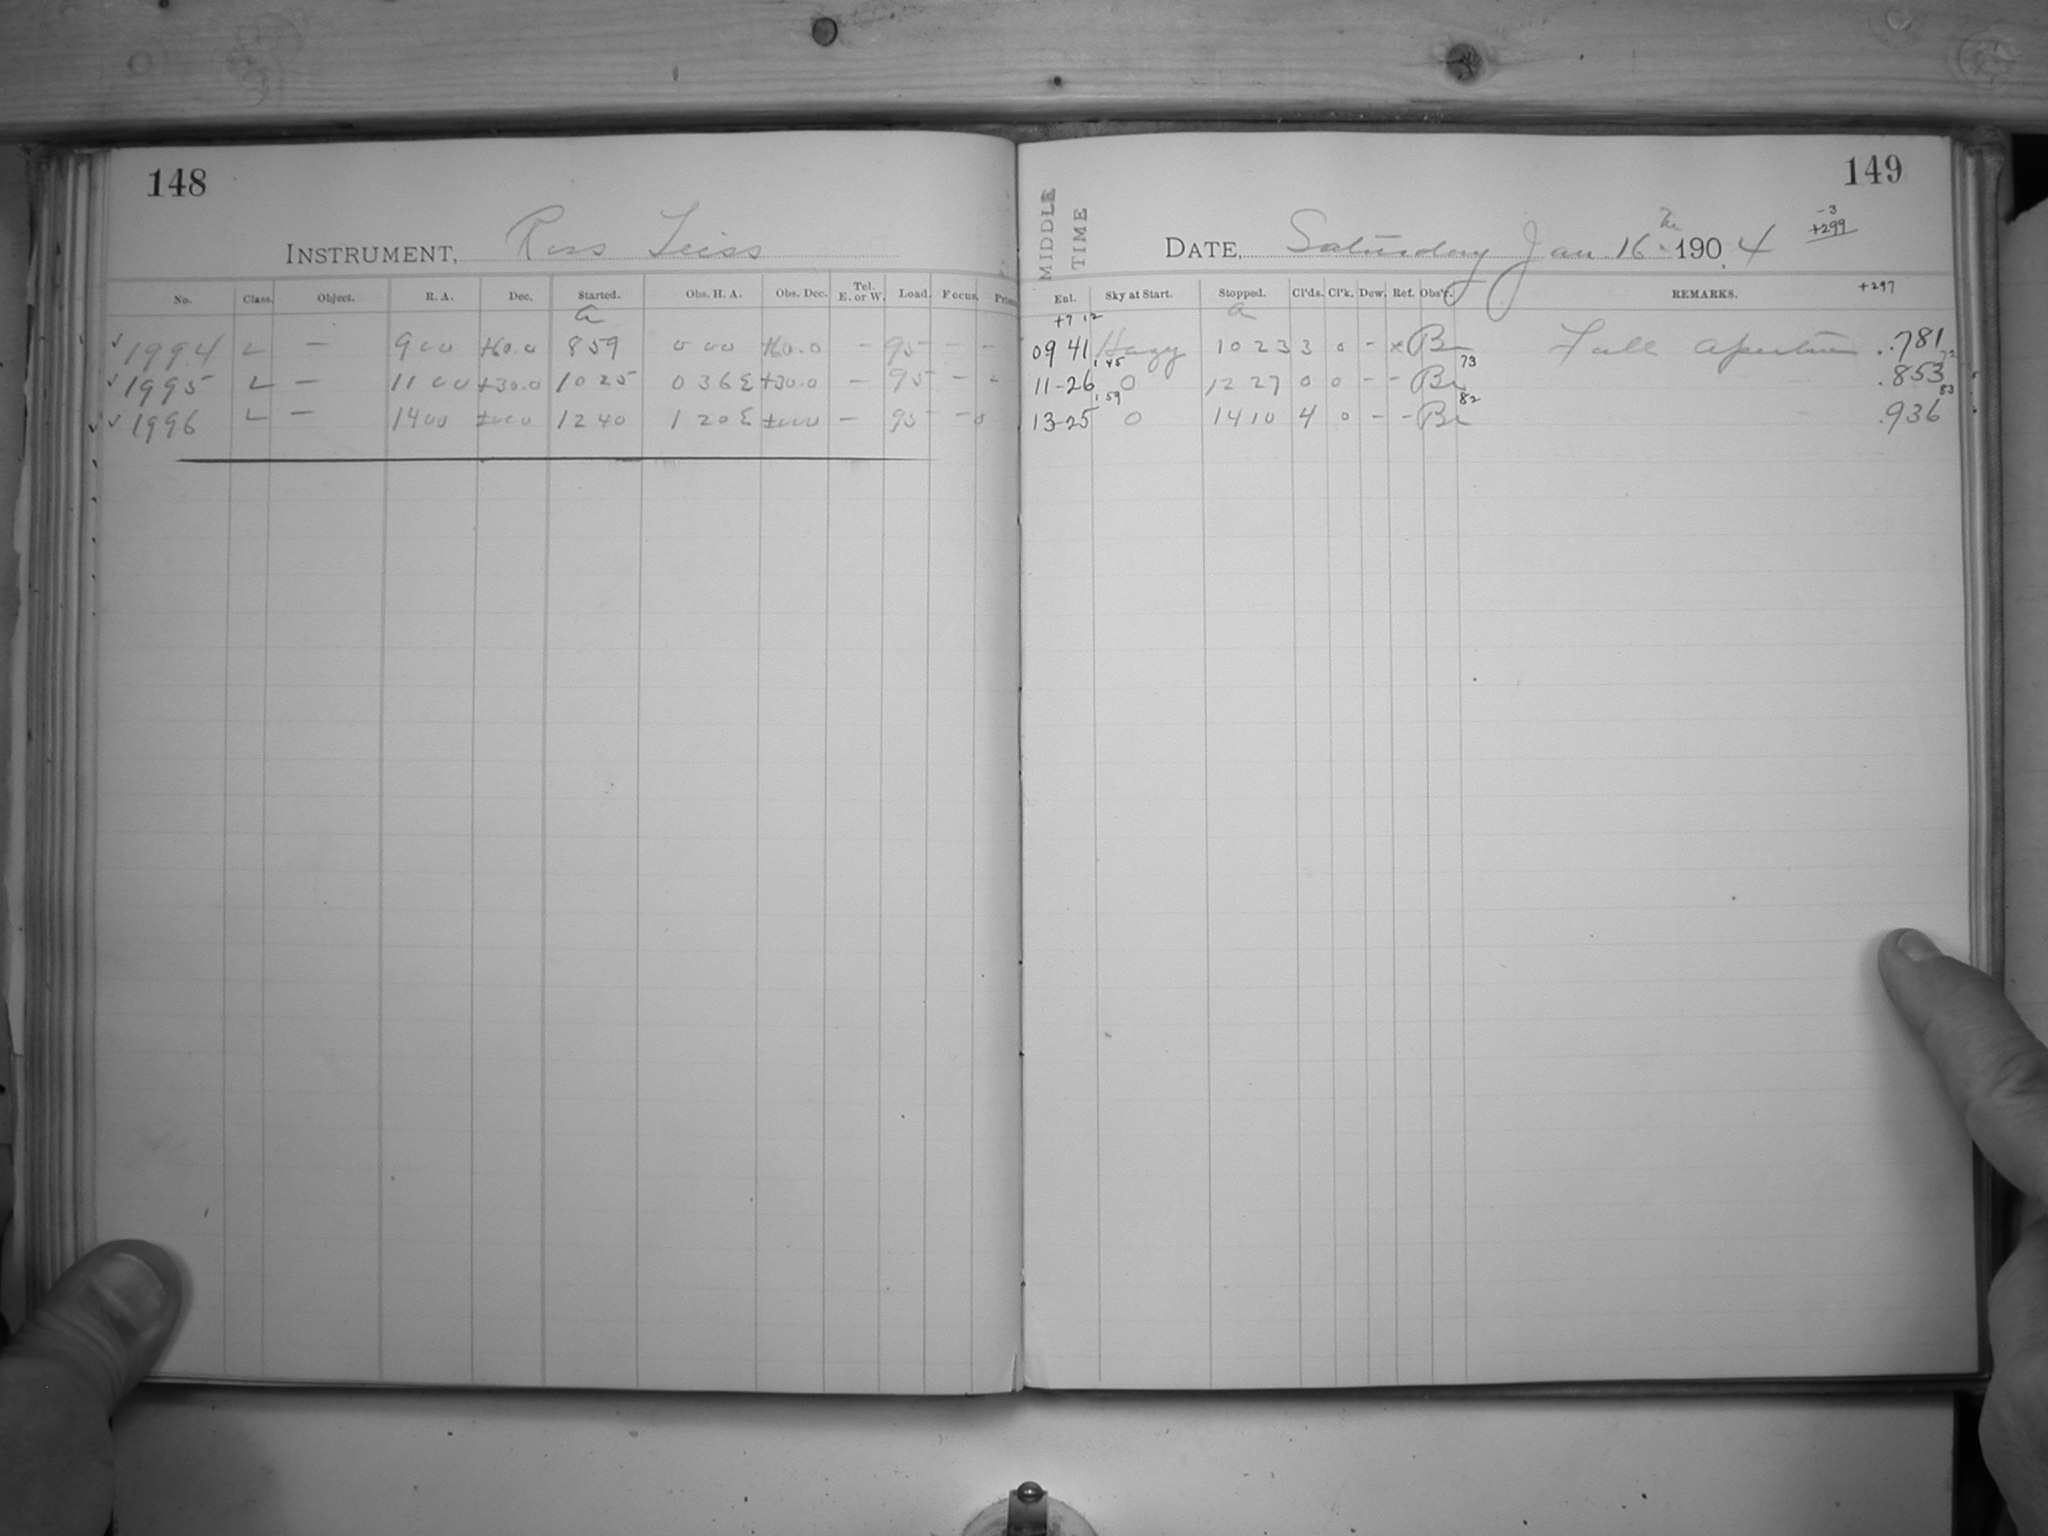 148
INSTRUMENT, Ross Zeiss
No. Class. Object. R. A. Dec. Started. Obs. H. A. Obs. Dec. Tel. E. or W. Load. Focus.
a
√ 1994 L — 9 00 +60.0 8 59 0 00 +60.0 — 95 — —
√ 1995 L — 11 00 +30.0 10 25 0 36 E +30.0 — 95 — -
√ √ 1996 L — 14 00 ±00.0 12 40 1 20 E ±00.0 — 95 — 0
149
MIDDLE
TIME
DATE, Saturday Jan. 16th 1904
-3
+299
+297
Enl. Sky at Start. Stopped. Cl'ds. Cl'k. Dew. Ref. Obs'r. REMARKS.
+7 12 a
09 41 Hazy 10 23 3 0 - x B Full aperture .781
1.45 73 72
11-26 0 12 27 0 0 - - Br .853
1.59 82 83
13-25 0 14 10 4 0 - - Br .936